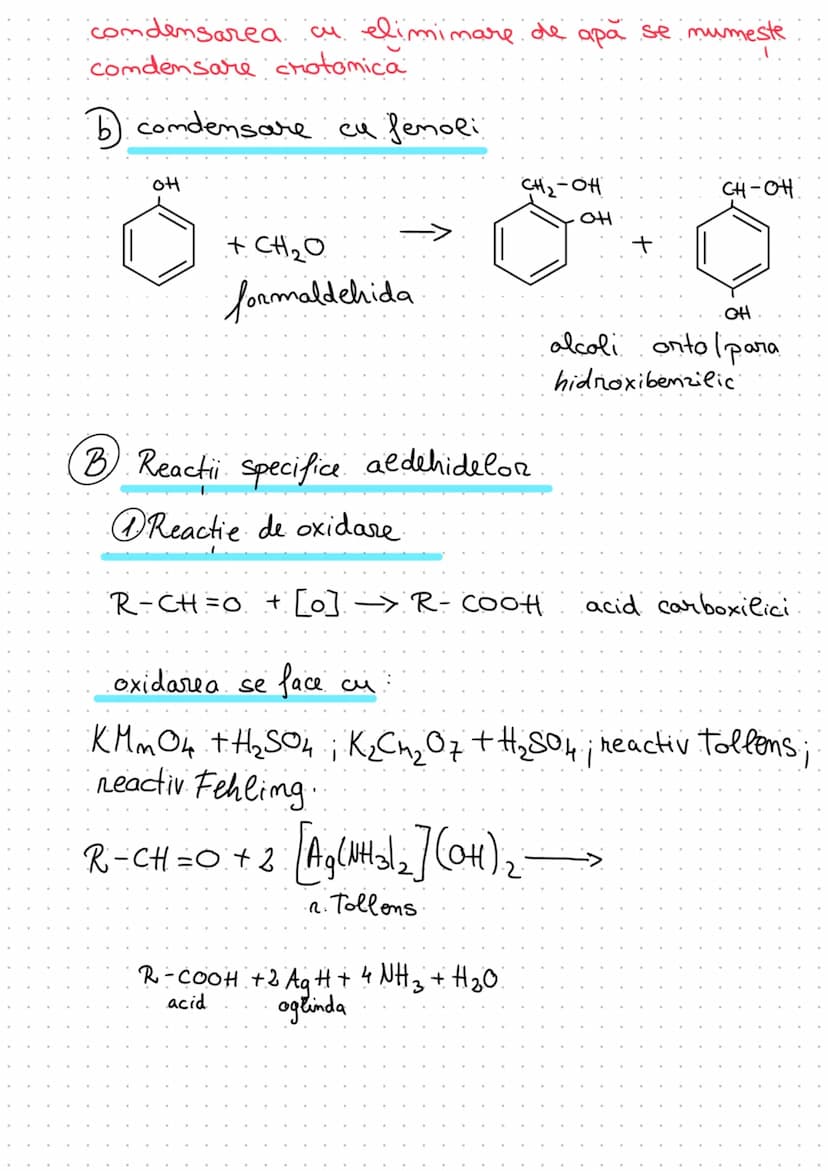 condensarea cu eliminare de apă se numește
condensare crotonică
b) condensare cu fenoli
OH
+ CH2O
formaldehida
→
CH2-OH
OH
+
CH-OH
OH
alcoli orto/para
hidroxibenzilic
B) Reacții specifice aldehidelor
1. Reacție de oxidare
R-CH=O + [O] → R-COOH acid carboxilici
oxidarea se face cu :
KMnO4 + H2SO4 ; K2Cr2O7 + H2SO4 ; reactiv Tollens ;
reactiv Fehling.
R-CH=O + 2 [Ag(NH3)2](OH)2 →
r. Tollens
R-COOH + 2 AgH + 4 NH3 + H2O
acid oglinda